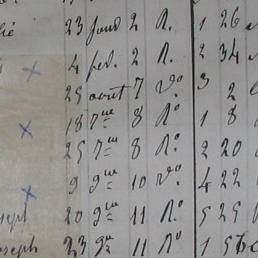 23 2 R.° 1 26
4 fév. 2 R.° 2 34
25 août 7 V° 3 2
18 7bre 8 R° 1 8
25 7bre 8 R.° 2 20
9 9bre 10 V.° 4 22
20 9bre 11 R.° 5 25
oseph 23 9bre 11 R° 1